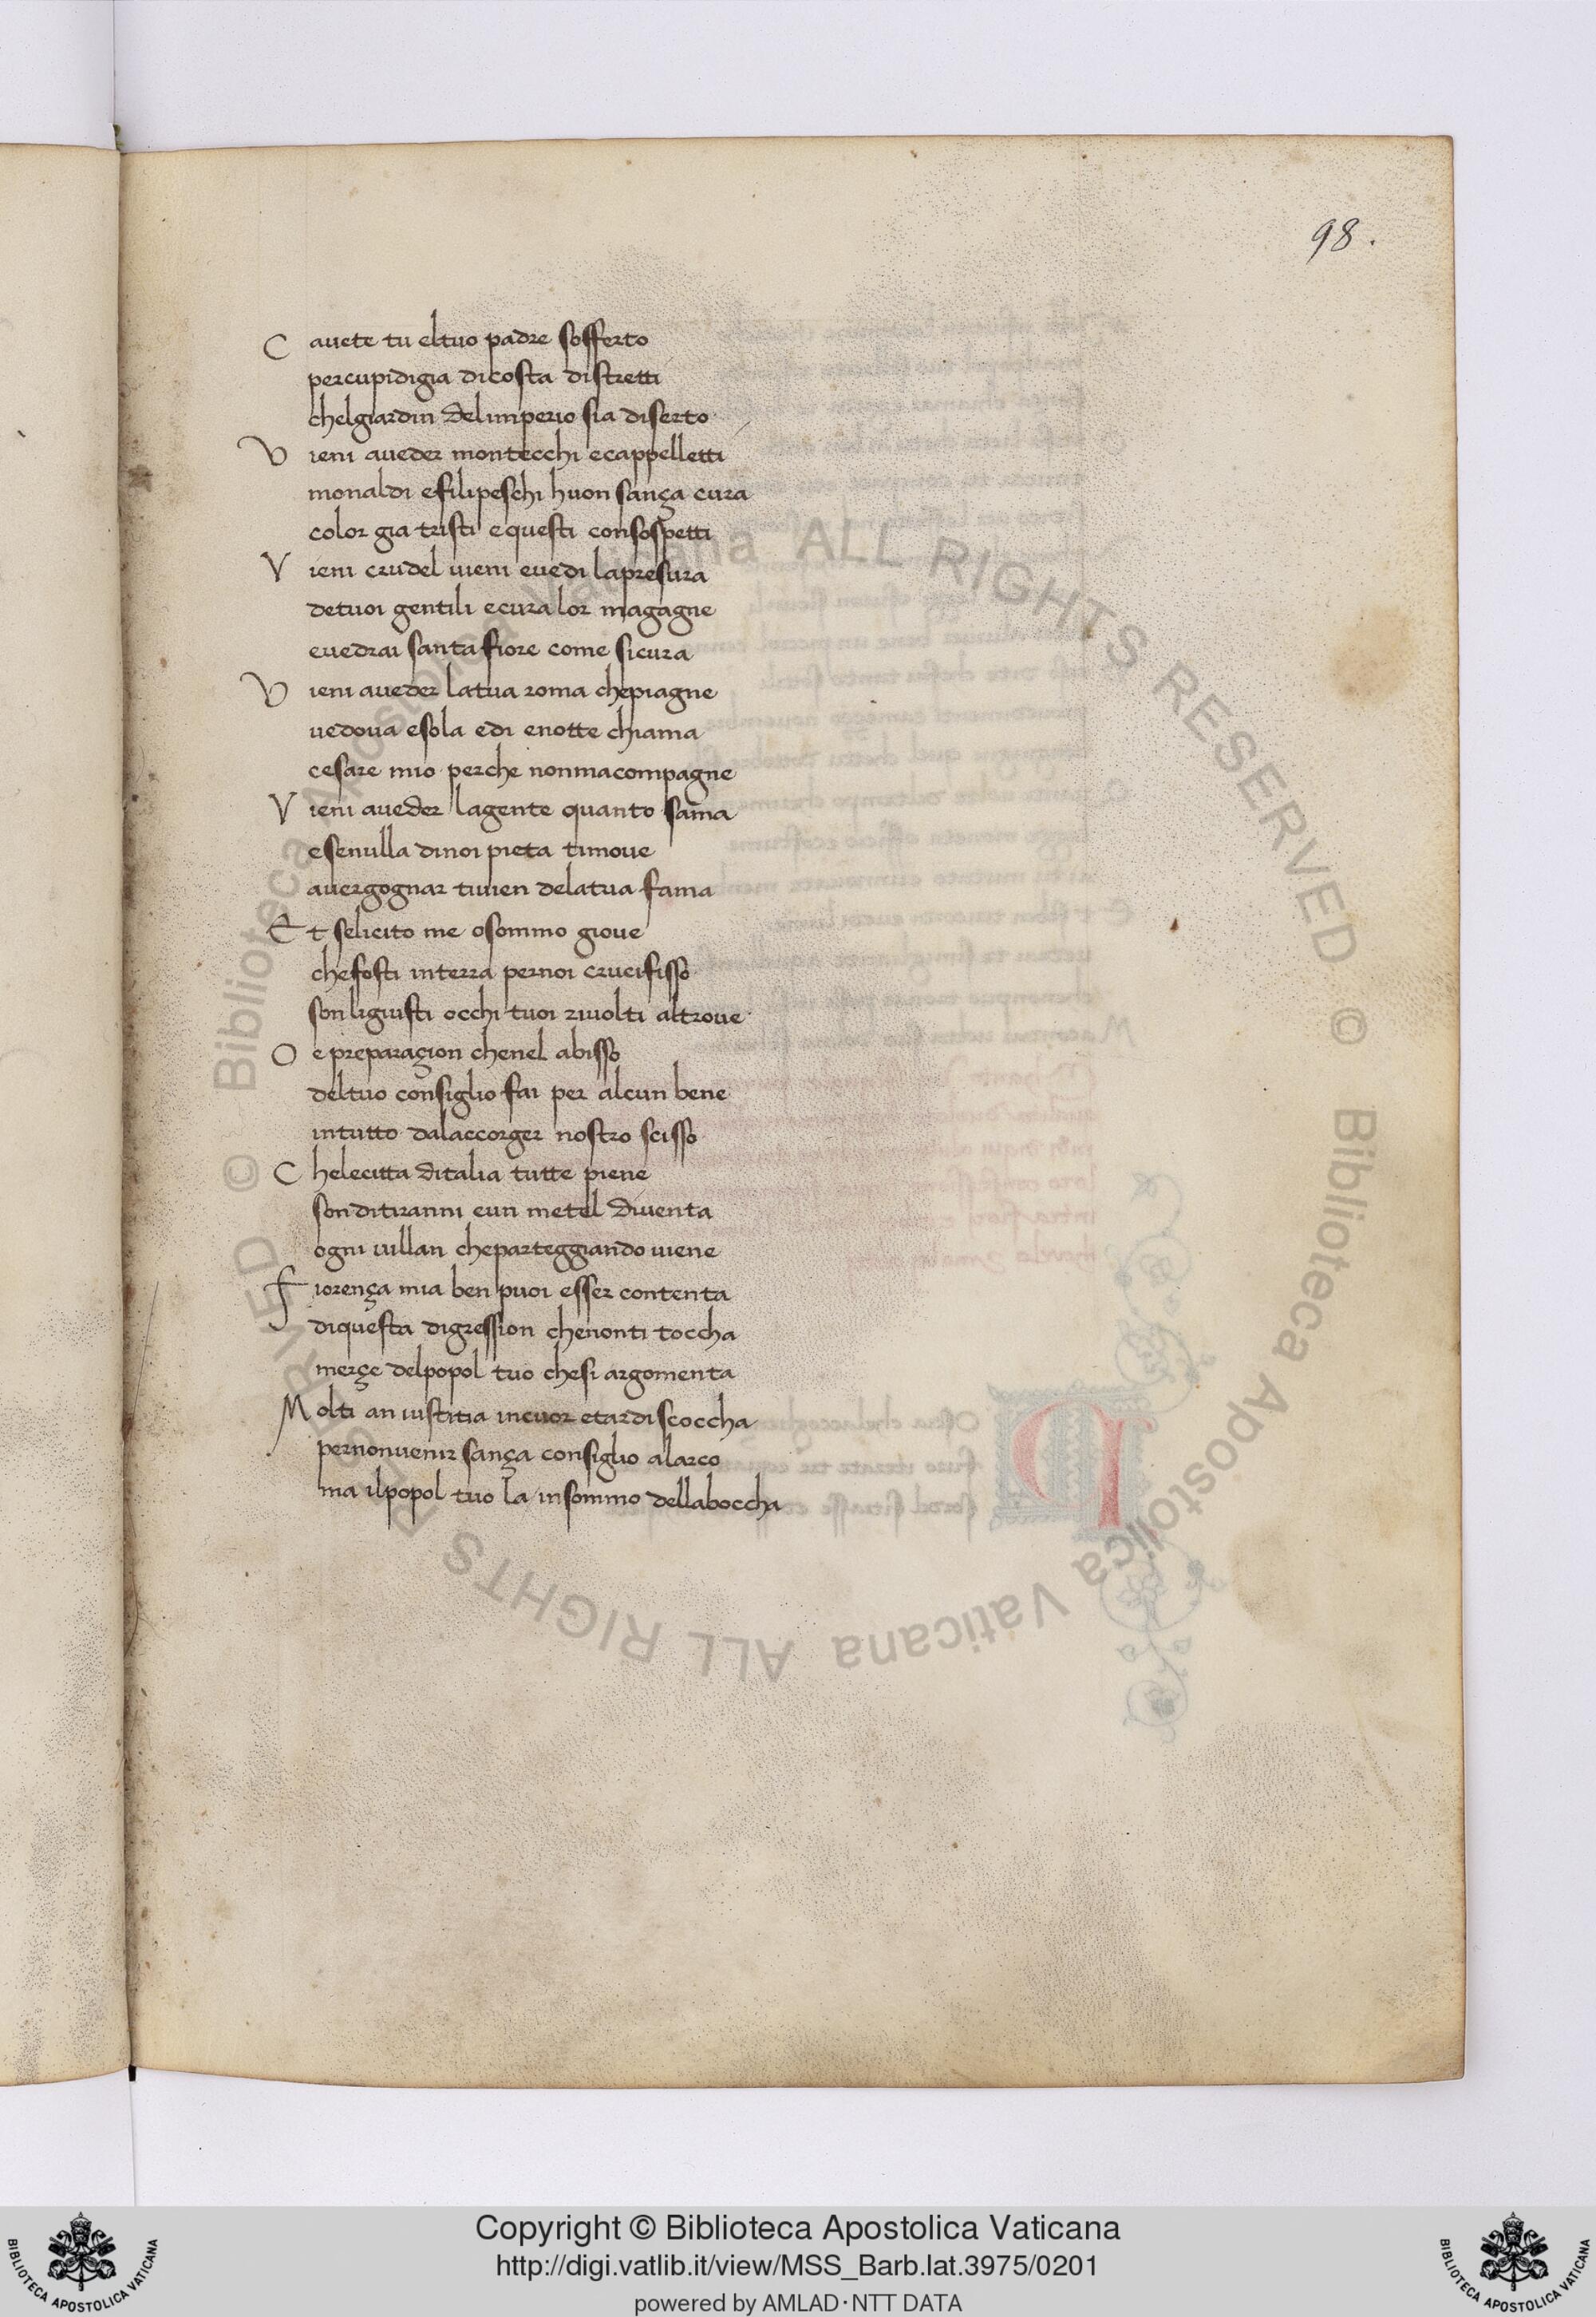 98.
C avete tu eltuo padre sofferto
percupidigia dicosta distretti
chelgiardin delimperio sia diserto
V ieni aveder montecchi ecappelletti
monaldi efilipeschi huon sança cura
color gia tristi equesti consospetti
V ieni crudel vieni evedi lapresura
detuoi gentili ecura lor magagne
evedrai santa fiore come sicura
V ieni aveder latua roma chepiagne
vedova esola edi enotte chiama
cesare mio perche nonmacompagne
V ieni aveder lagente quanto sama
esenulla dinoi pieta timove
avergognar tivien delatua fama
E t selicito me osommo giove
chefosti interra pernoi crucifisso
son ligiusti occhi tuoi rivolti altrove
O e preparaçion chenel abisso
deltuo consiglio fai per alcun bene
intutto dalaccorger nostro scisso
C helecitta ditalia tutte piene
son ditiranni eun metel diventa
ogni villan cheparteggiando viene
F iorença mia ben puoi esser contenta
diquesta digression chenonti toccha
merçe delpopol tuo chesi argomenta
M olti an iustitia incuor etardi scoccha
pernonvenir sança consiglio alarco
ma ilpopol tuo la insommo dellaboccha
© Biblioteca Apostolica Vaticana ALL RIGHTS RESERVED © Biblioteca Apostolica Vaticana ALL RIGHTS RESERVED
Copyright © Biblioteca Apostolica Vaticana
http://digi.vatlib.it/view/MSS_Barb.lat.3975/0201
powered by AMLAD·NTT DATA
BIBLIOTECA APOSTOLICA VATICANA
BIBLIOTECA APOSTOLICA VATICANA